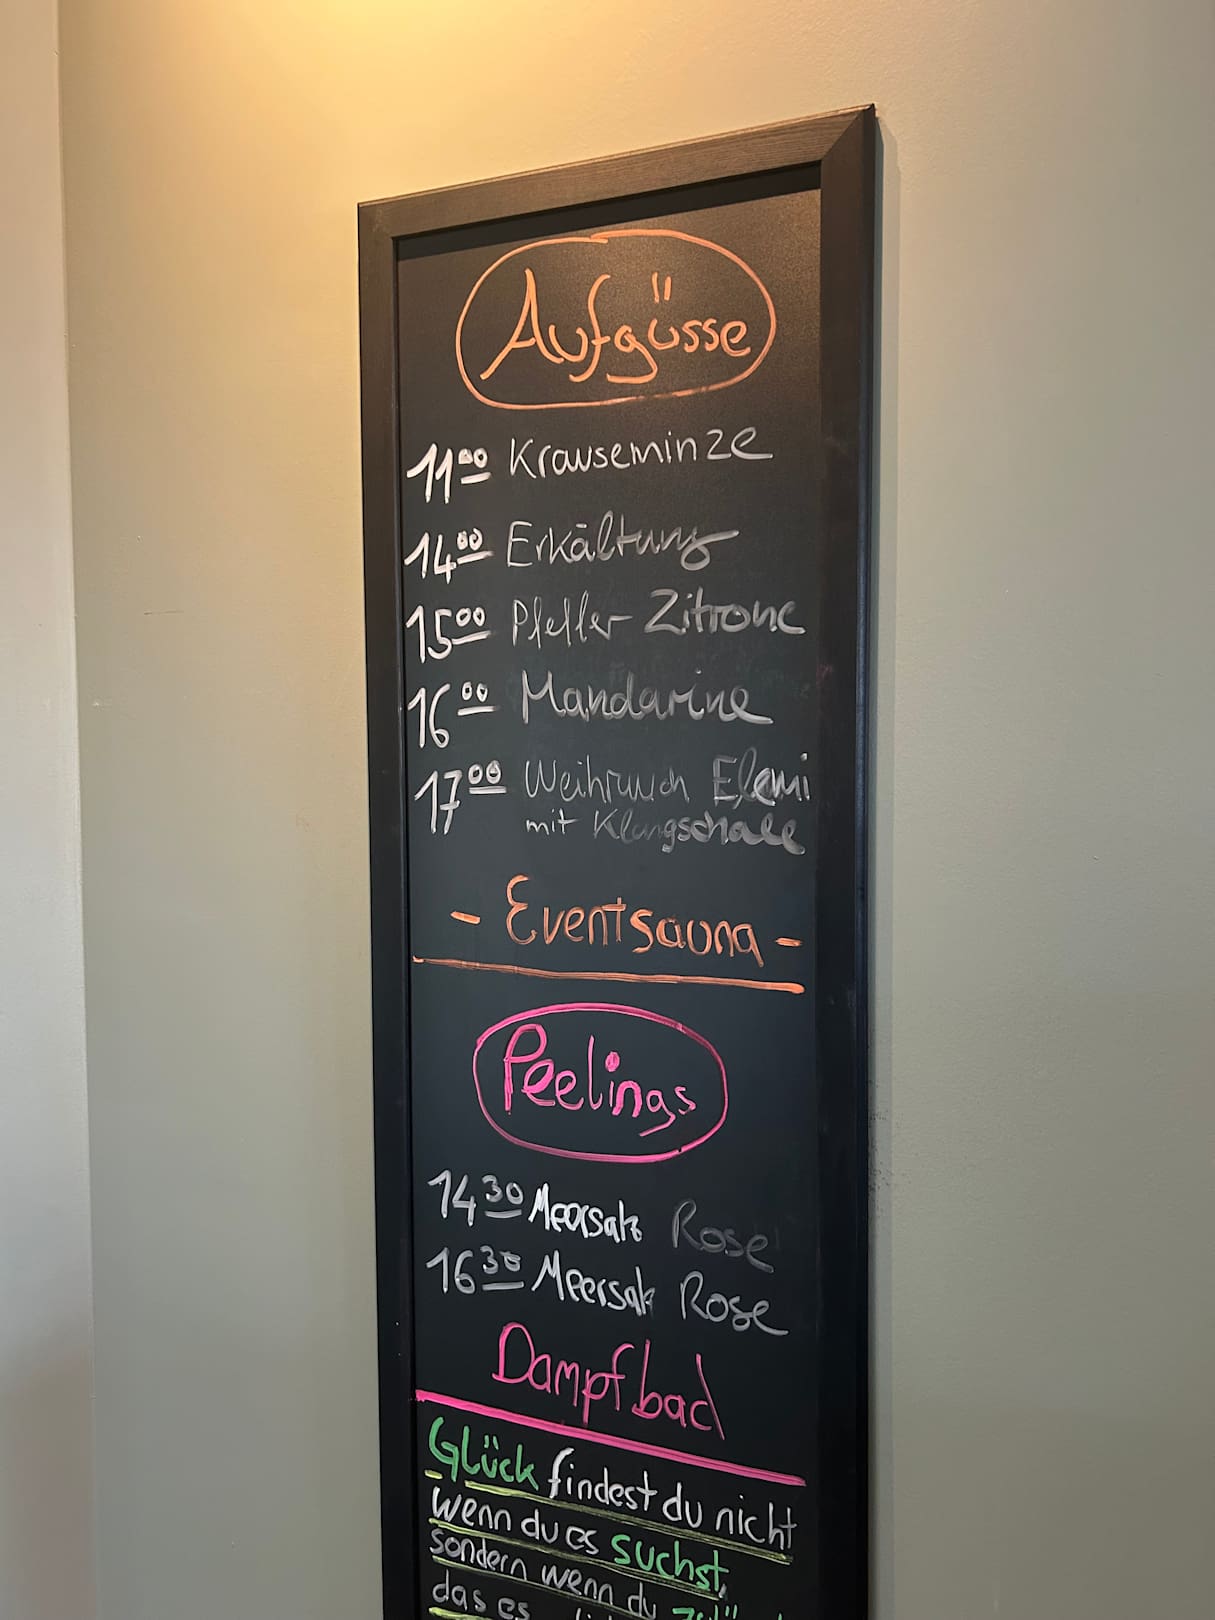 Aufgüsse
11⁰⁰ Krauseminze
14⁰⁰ Erkältung
15⁰⁰ Pfeffer Zitrone
16⁰⁰ Mandarine
17⁰⁰ Weihrauch Elemi
mit Klangschale
- Eventsauna -
Peelings
14³⁰ Meersalz Rose
16³⁰ Meersalz Rose
Dampfbad
Glück findest du nicht
wenn du es suchst,
sondern wenn du
das es